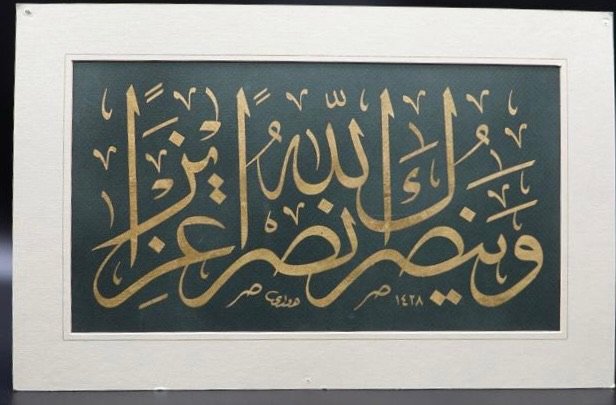 وَيَنْصُرَكَ اللّٰهُ نَصْرًا عَزِيزًا
١٤٢٨